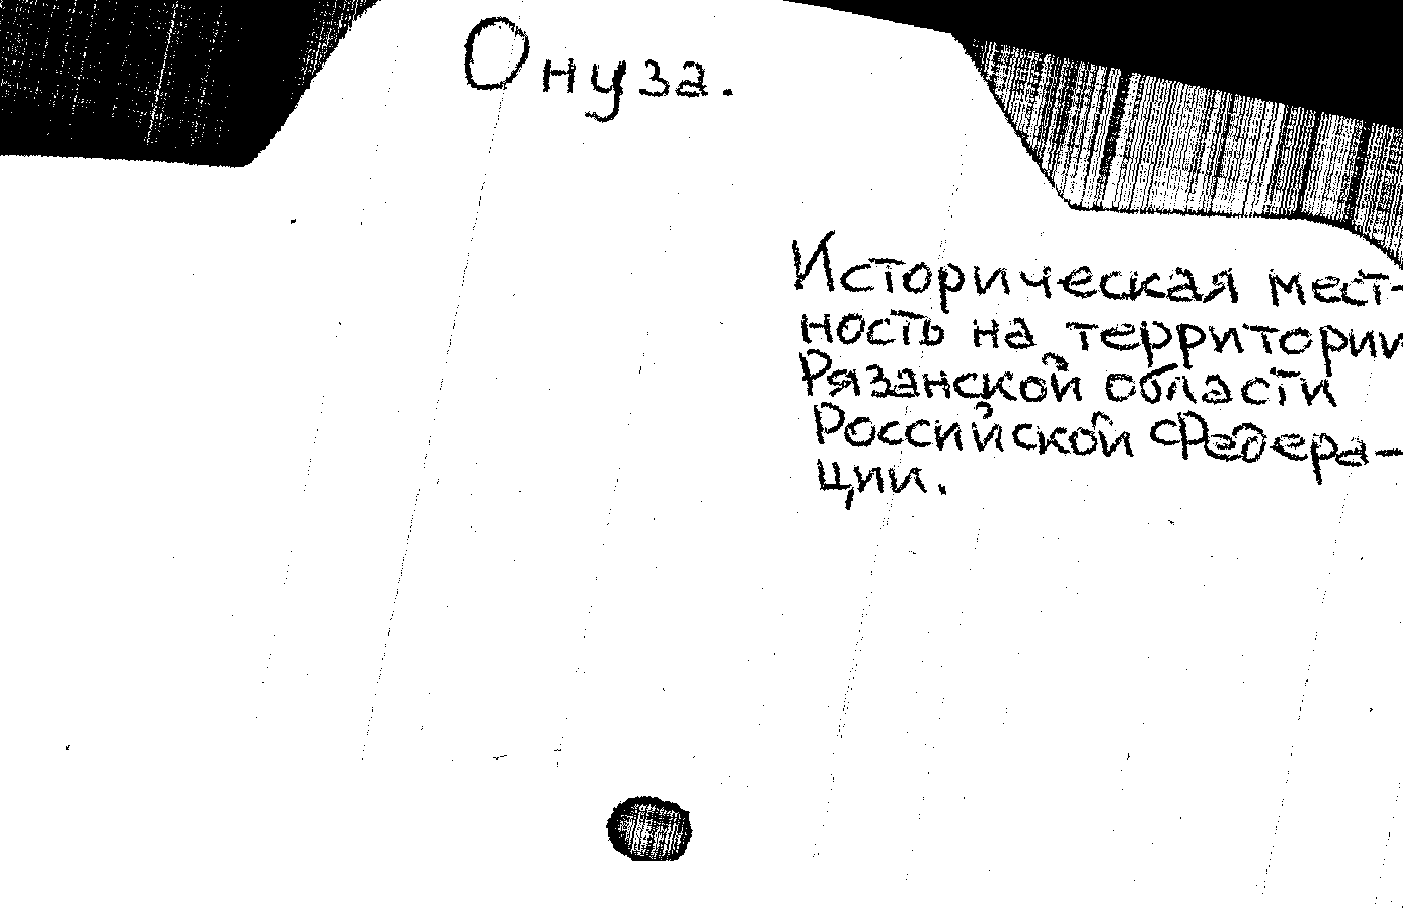 Онуза.
Историческая мест-
ность на территории
Рязанской области
Российской Федера-
ции.